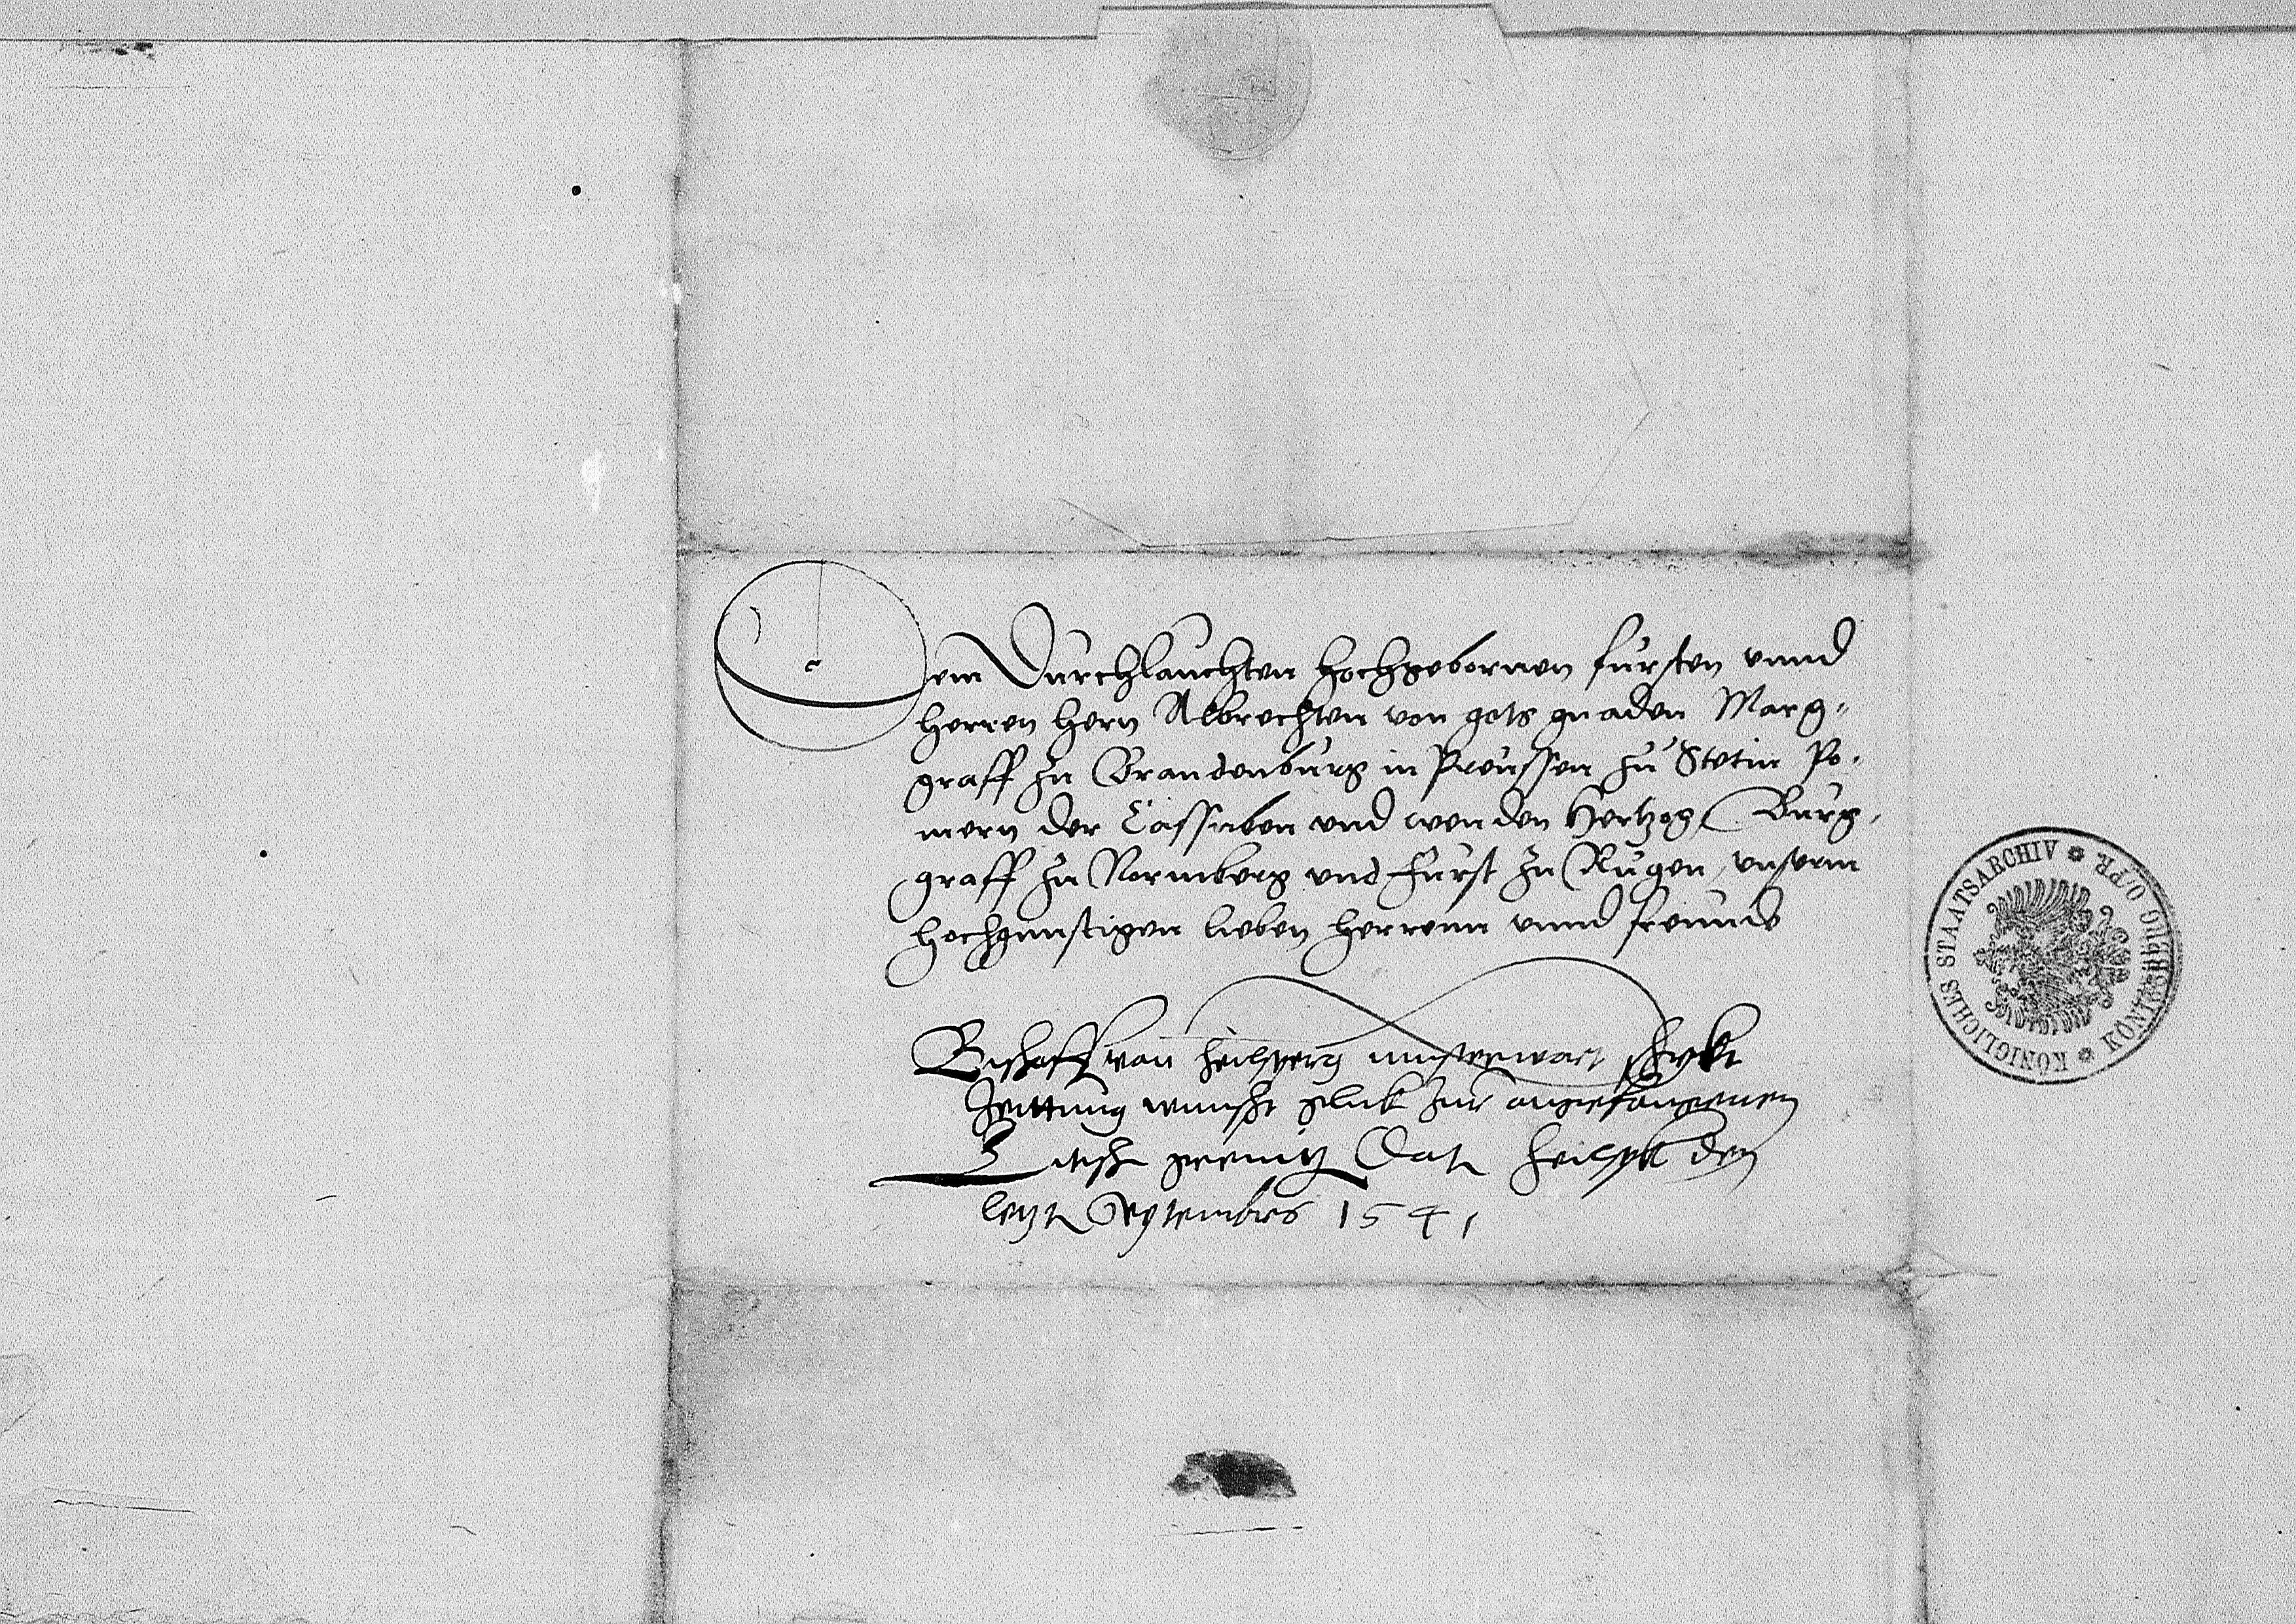 Dem Durchlauchten hochgebornen fursten vnnd
herren hern Albrechten von gots gnaden Marg-
graff zu Brandenburg in Preussen zu Stetin Po-
mern der Cassuben vnd wenden Hertzog Burg-
graff zu Normberg vnd Furst zu Rugen, vnserm
hochgunstigen lieben herrenn vnnd freunde
Bischoff von heilsperg schykt
Zeittung wunscht gluk zur angefangenen
grenitz Dat heilspk den
letzt Septembris 1541
KÖNIGLICHES STAATSARCHIV * KÖNIGSBERG O/PR. *